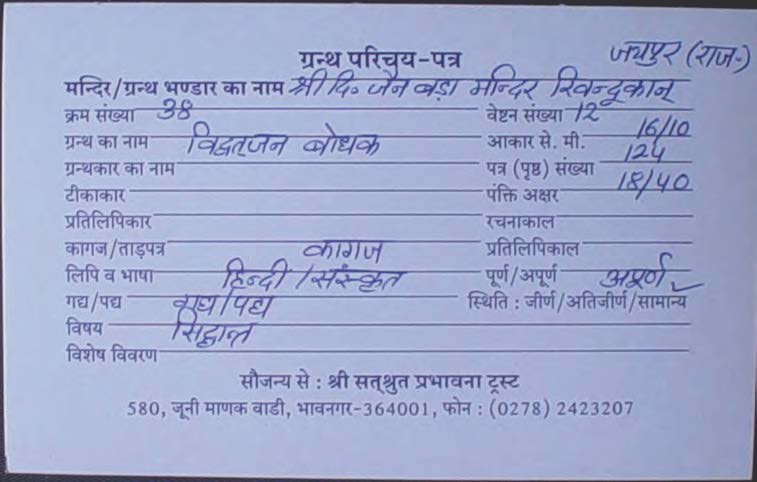 ग्रन्थ परिचय-पत्र जयपुर (राज.)
मन्दिर/ग्रन्थ भण्डार का नाम श्री दि॰ जैन बड़ा मन्दिर खिन्दूकान्
क्रम संख्या 38 वेष्टन संख्या 12
ग्रन्थ का नाम विद्वत्जन बोधक आकार से. मी. 16/10
ग्रन्थकार का नाम पत्र (पृष्ठ) संख्या 124
टीकाकार पंक्ति अक्षर 18/40
प्रतिलिपिकार रचनाकाल
कागज/ताड़पत्र कागज प्रतिलिपिकाल
लिपि व भाषा हिन्दी/संस्कृत पूर्ण/अपूर्ण अपूर्ण
गद्य/पद्य गद्य/पद्य स्थिति : जीर्ण/अतिजीर्ण/सामान्य ✓
विषय सिद्धान्त
विशेष विवरण
सौजन्य से : श्री सत्श्रुत प्रभावना ट्रस्ट
580, जूनी माणक वाडी, भावनगर-364001, फोन : (0278) 2423207